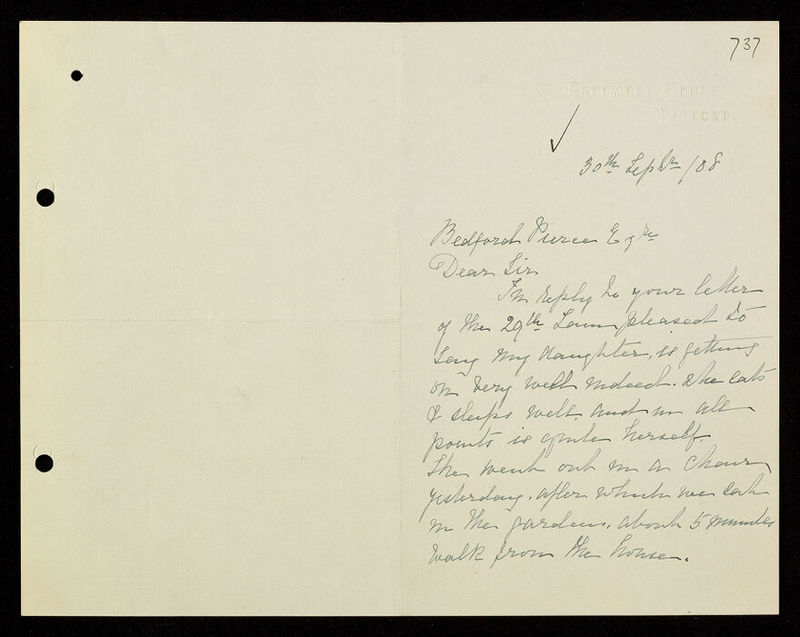 737
House
30th Septr /08
Bedford Pierce Esqre
Dear Sir
In reply to your letter
of the 29th I am pleased to
say my daughter, is getting
on very well indeed. She eats
& sleeps well. and in all
points is quite herself
She went out in a chair
yesterday. after which we sat
in the gardens, about 5 minutes
walk from the house.